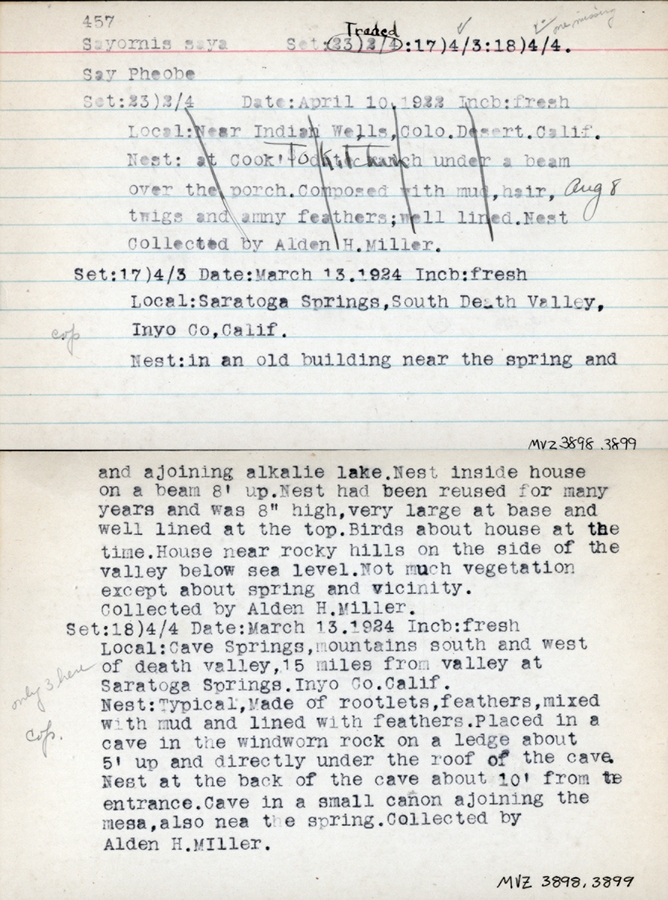 457
Traded
one missing
Sayornis saya Set:23)2/4:17)4/3:18)4/4.
Say Pheobe
Set:23)2/4 Date:April 10.1922 Incb:fresh
Local:Near Indian Wells,Colo.Desert.Calif.
Nest: at Cook' ranch under a beam
over the porch.Composed with mud,hair, Aug 8
twigs and amny feathers;well lined.Nest
Collected by Alden H.Miller.
Set:17)4/3 Date:March 13.1924 Incb:fresh
Local:Saratoga Springs,South Death Valley,
Inyo Co,Calif.
cop
Nest:in an old building near the spring and
MVZ 3898, 3899
and ajoining alkalie lake.Nest inside house
on a beam 8' up.Nest had been reused for many
years and was 8" high,very large at base and
well lined at the top.Birds about house at the
time.House near rocky hills on the side of the
valley below sea level.Not much vegetation
except about spring and vicinity.
Collected by Alden H.Miller.
Set:18)4/4 Date:March 13.1924 Incb:fresh
Local:Cave Springs,mountains south and west
only 3 here of death valley,15 miles from valley at
Saratoga Springs.Inyo Co.Calif.
Nest:Typical,Made of rootlets,feathers,mixed
cop. with mud and lined with feathers.Placed in a
cave in the windworn rock on a ledge about
5' up and directly under the roof of the cave.
Nest at the back of the cave about 10' from te
entrance.Cave in a small cañon ajoining the
mesa,also nea the spring.Collected by
Alden H.MIller.
MVZ 3898, 3899